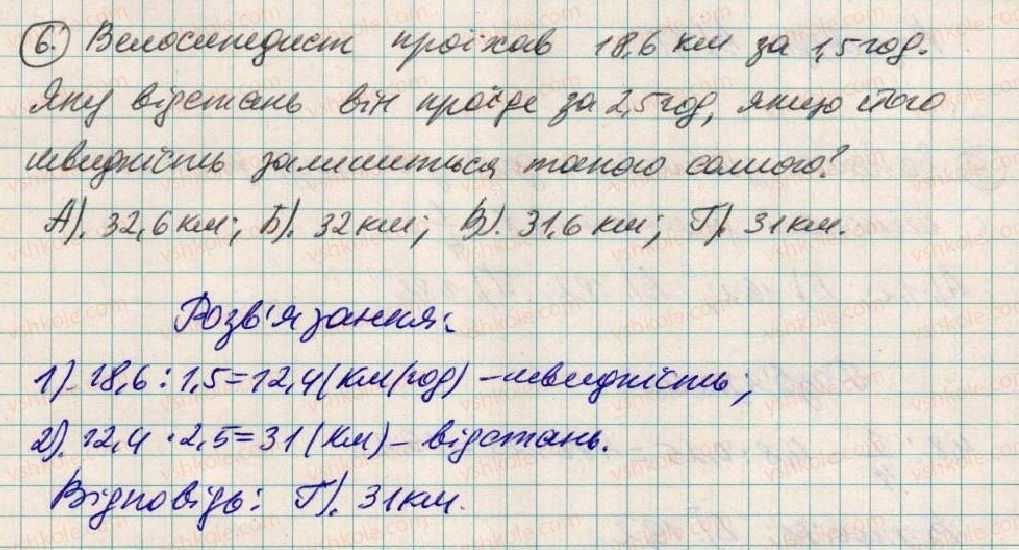 6. Велосипедист проїхав 18,6 км за 1,5 год.
Яку відстань він проїде за 2,5 год, якщо його
швидкість залишиться такою самою?
А). 32,6 км; Б). 32 км; В). 31,6 км; Г). 31 км.
Розв'язання:
1). 18,6 : 1,5 = 12,4 (км/год) – швидкість;
2). 12,4 · 2,5 = 31 (км) – відстань.
Відповідь: Г). 31 км.